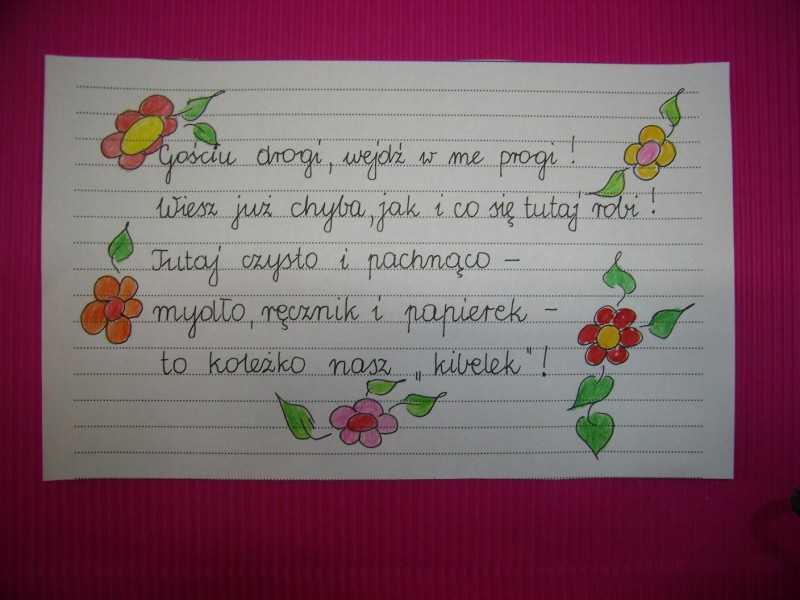 Gościu drogi, wejdź w me progi!
Wiesz już chyba, jak i co się tutaj robi!
Tutaj czysto i pachnąco -
mydło, ręcznik i papierek -
to koleżko nasz „kibelek"!